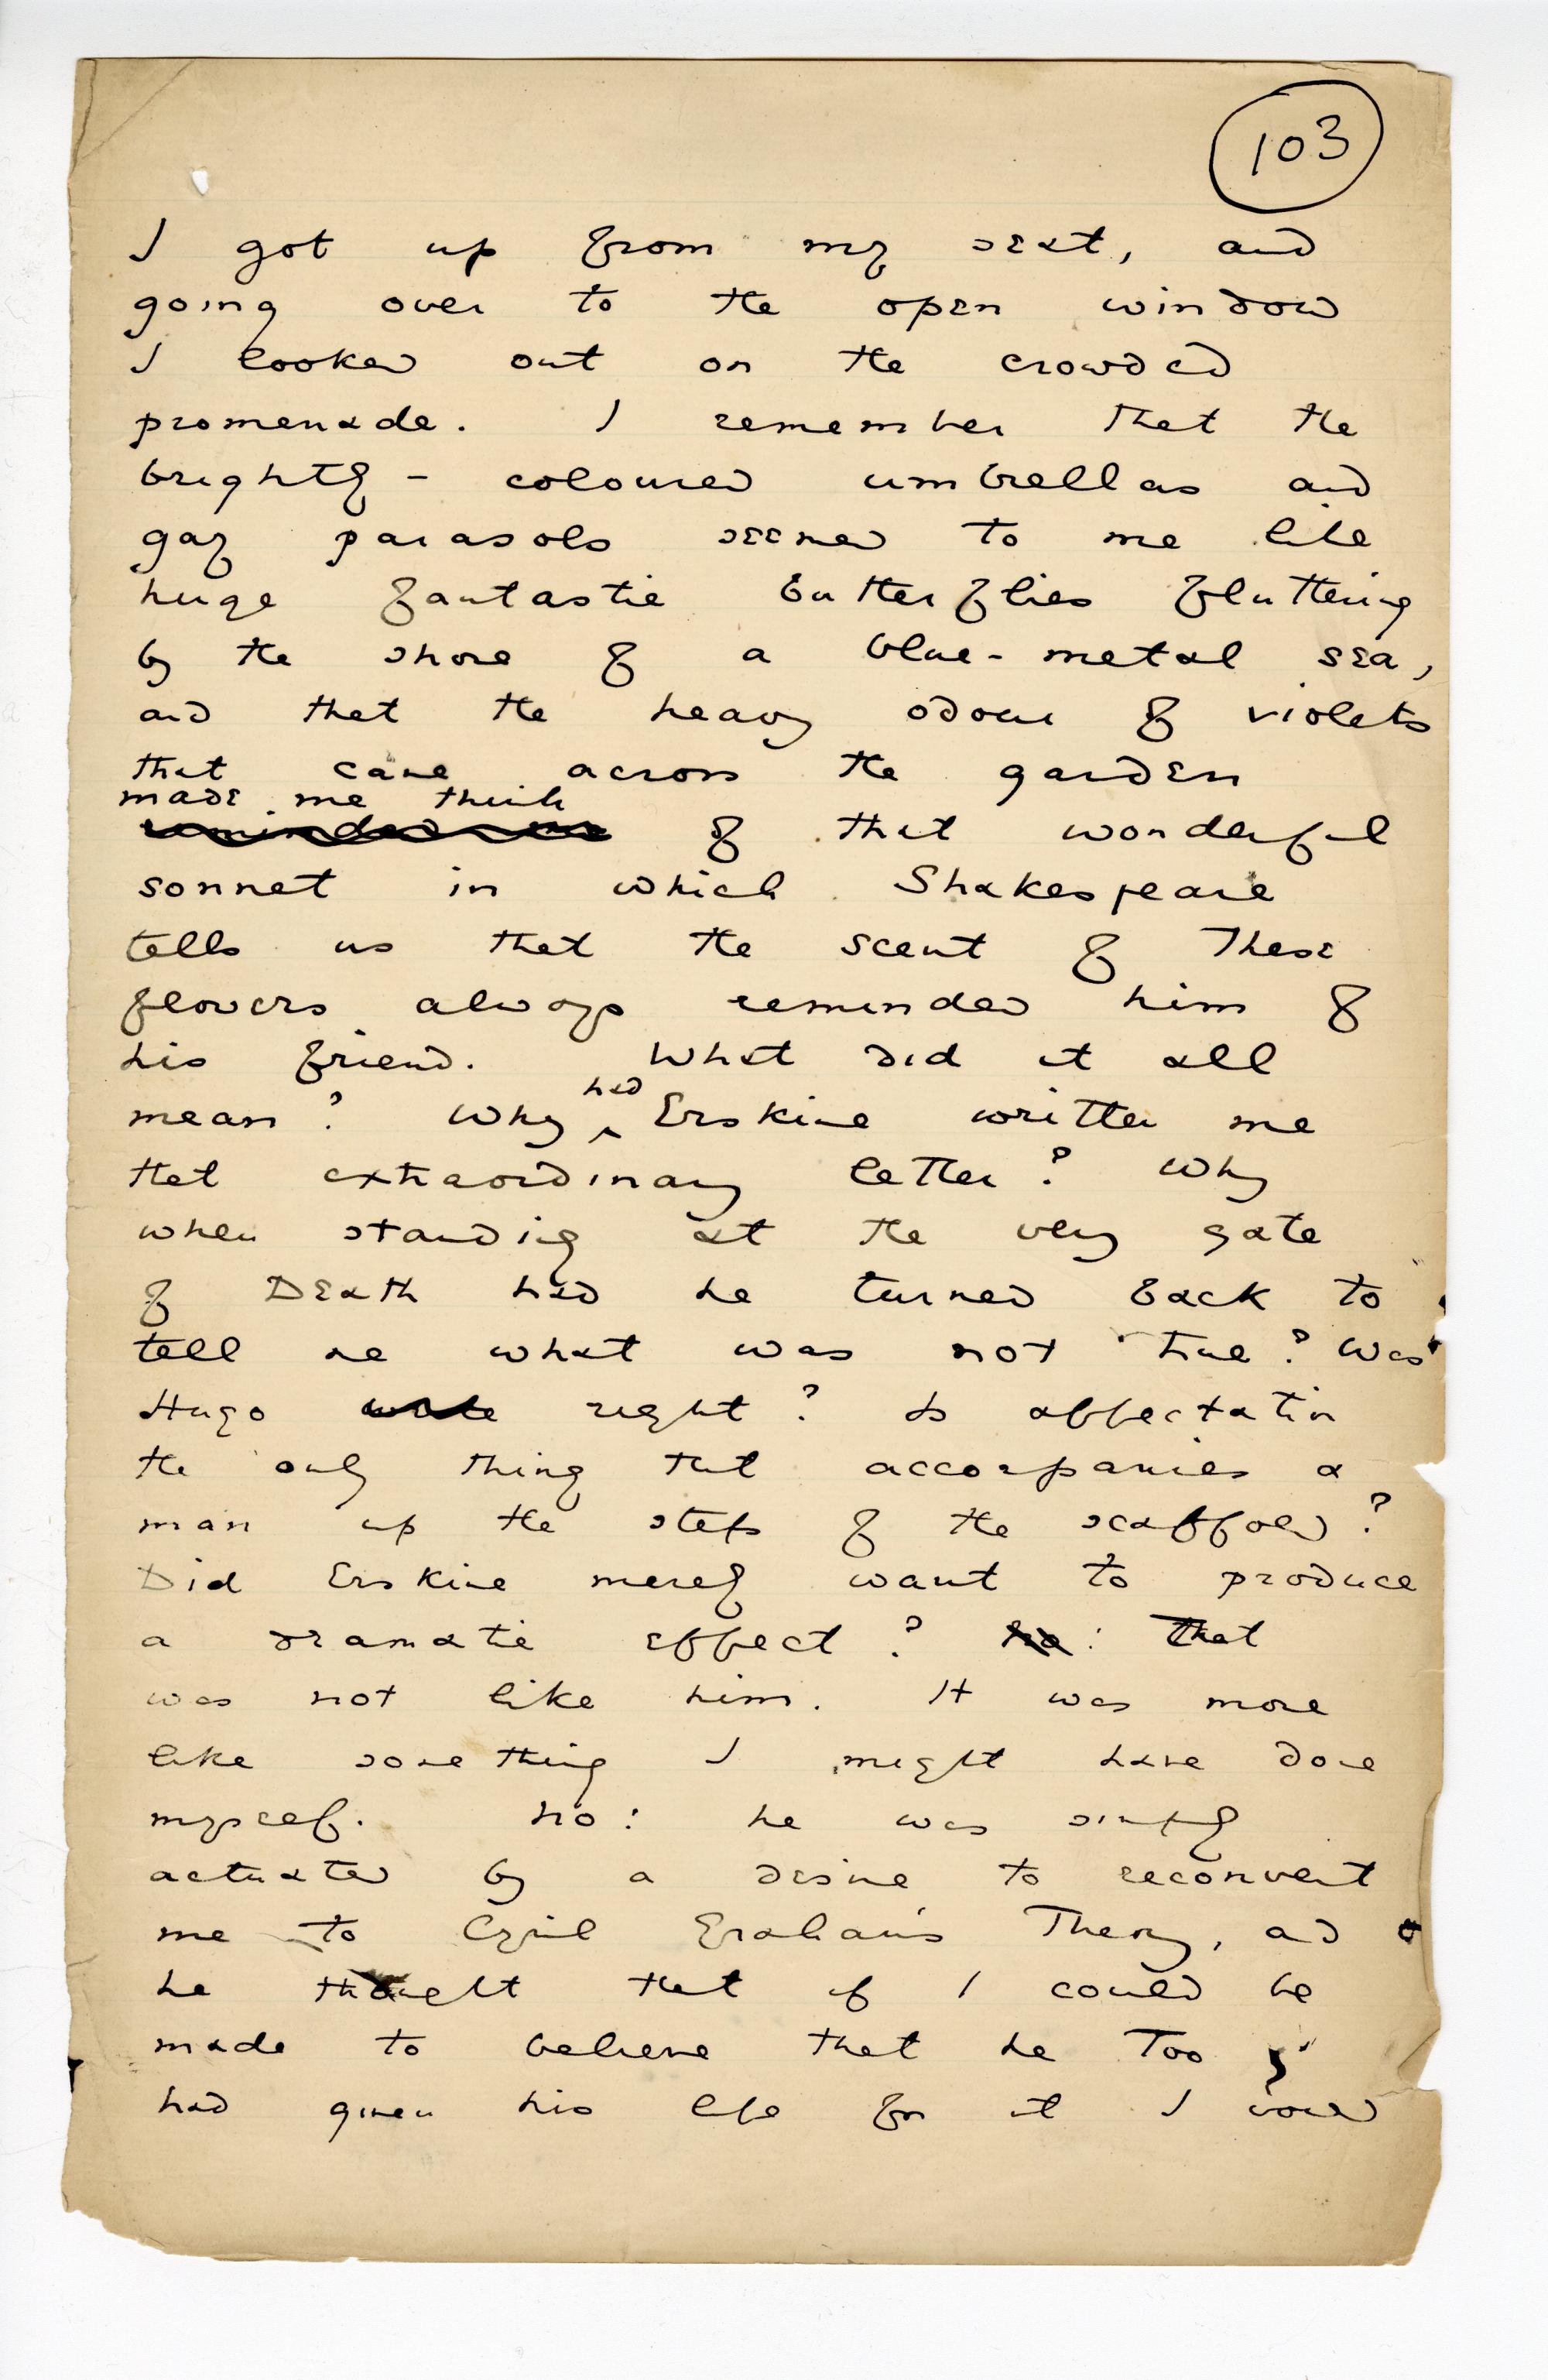 103
I got up from my seat, and
going over to the open window
I looked out on the crowded
promenade. I remember that the
brightly-coloured umbrellas and
gay parasols seemed to me like
huge fantastic butterflies fluttering
by the shore of a blue-metal sea,
and that the heavy odour of violets
that came across the garden
made me think
reminded me of that wonderful
sonnet in which Shakespeare
tells us that the scent of these
flowers always reminded him of
his friend. What did it all
had
mean? Why ^ Erskine written me
that extraordinary letter? Why
when standing at the very gate
of Death had he turned back to
tell me what was not true? Was
Hugo right? Is affectation
the only thing that accompanies a
man up the steps of the scaffold?
Did Erskine merely want to produce
a dramatic effect? No: That
was not like him. It was more
like something I might have done
myself. No: he was simply
actuated by a desire to reconvert
me to Cyril Graham's Theory, and
he thought that if I could be
made to believe that he too
had given his life for it I would